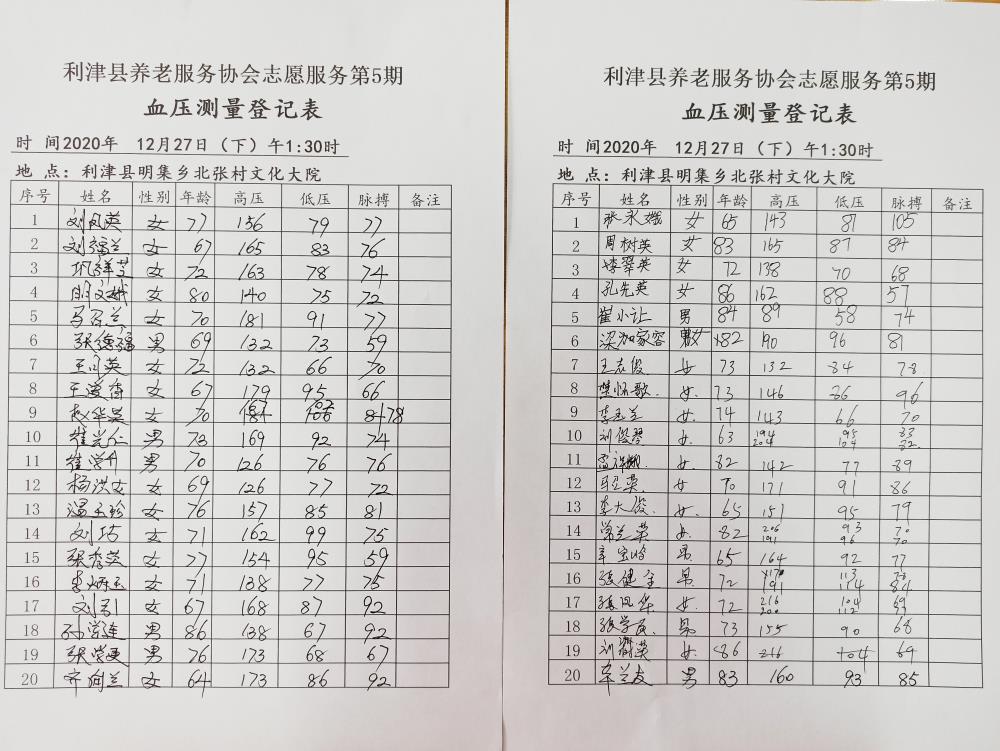 利津县养老服务协会志愿服务第5期
血压测量登记表
时 间2020年 12月27日（下）午1:30时
地 点：利津县明集乡北张村文化大院
序号 姓名 性别 年龄 高压 低压 脉搏 备注
1 刘风英 女 77 156 79 77
2 刘福兰 女 67 165 83 76
3 女 72 163 78 74
4 女 80 140 75 72
5 女 70 181 91 77
6 男 69 132 73 59
7 女 72 132 66 70
8 女 67 179 95 66
9 赵华英 女 70 78
10 男 73 169 92 74
11 男 70 126 76 76
12 杨洪文 女 69 126 77 72
13 温玉珍 女 76 157 85 81
14 刘巧 女 71 162 99 75
15 张秀英 女 77 154 95 59
16 女 71 138 77 75
17 女 67 168 87 92
18 男 86 138 67 92
19 男 76 173 68 67
20 女 64 173 86 92
利津县养老服务协会志愿服务第5期
血压测量登记表
时 间2020年 12月27日（下）午1:30时
地 点：利津县明集乡北张村文化大院
序号 姓名 性别 年龄 高压 低压 脉搏 备注
1 张永娥 女 65 143 81 105
2 周树英 女 83 165 87 84
3 李翠英 女 72 138 70 68
4 孔先英 女 86 162 88 57
5 崔小让 男 84 89 58 74
6 女 82 190 96 81
7 女 73 132 84 78
8 女 73 146 96
9 女 74 143 66 70
10 刘俊琴 女 63 194 204 195 104
11 女 82 142 77 89
12 女 70 171 91 86
13 李大俊 女 65 151 95 79
14 女 82 206 191 93 96 70 70
15 男 65 164 92 77
16 张健全 男 72 191 113 114
17 张风华 女 72 216 200 104 112
18 张学 男 73 155 90 68
19 女 86 216 104 69
20 男 83 160 93 85